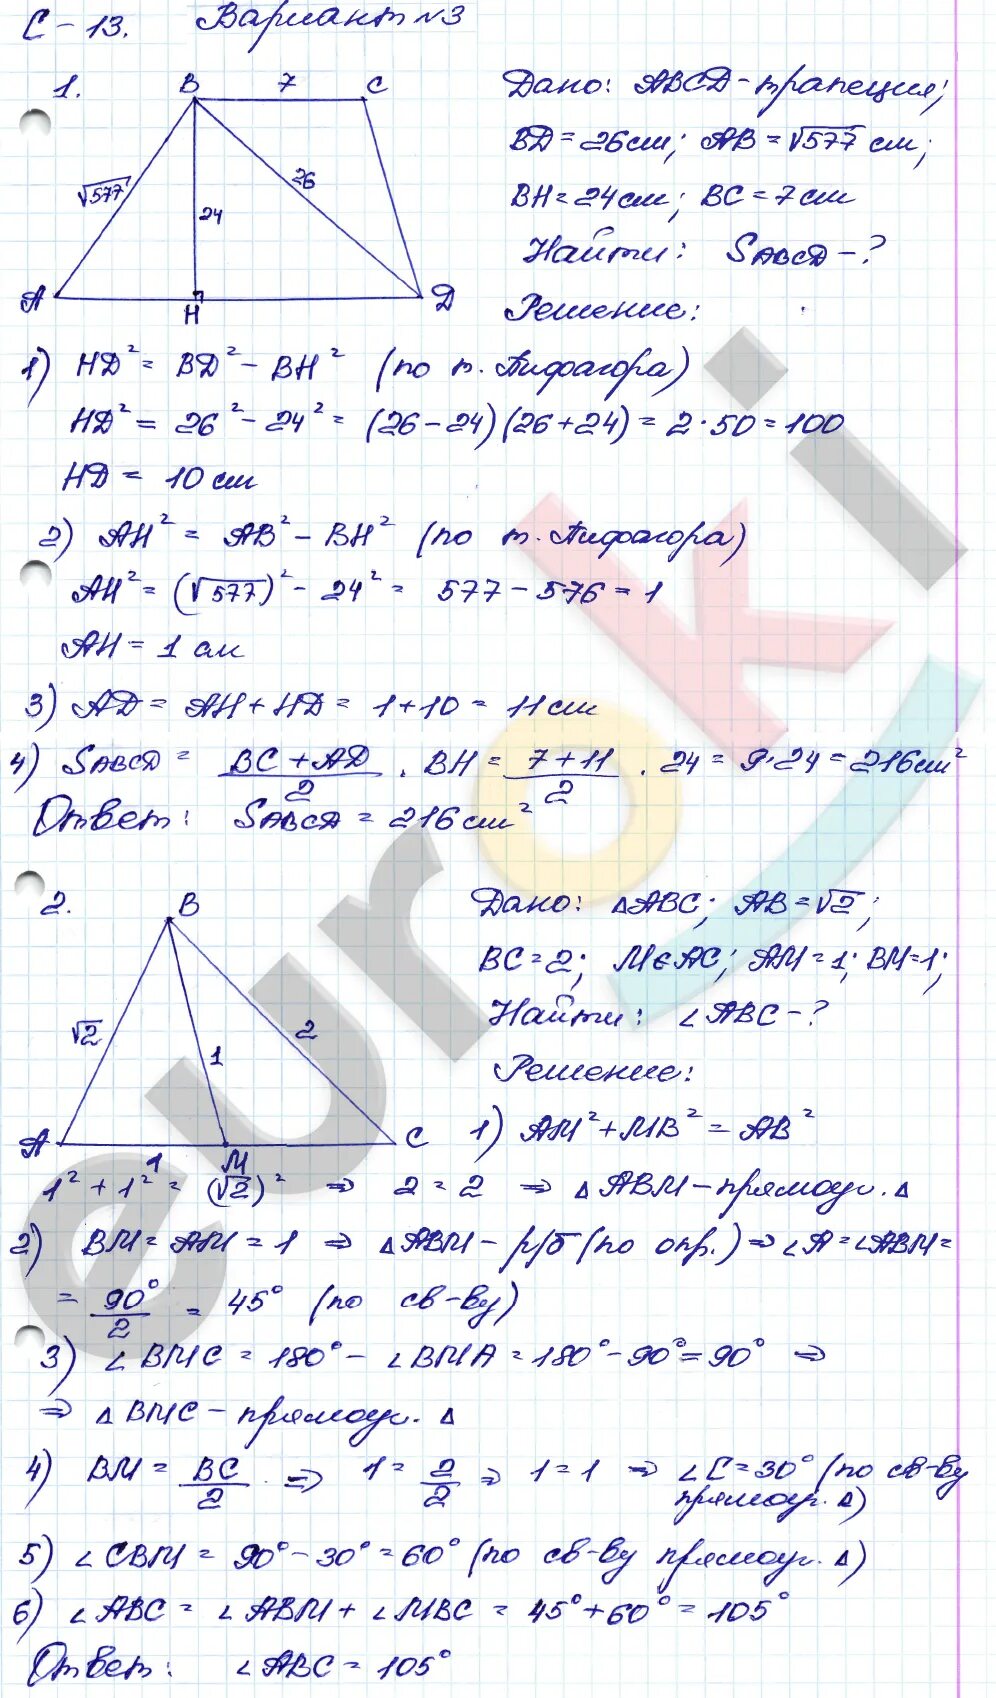 С-13. Вариант №3
1.
B 7 C
√577 24 26
A H D
Дано: ABCD-трапеция;
BD=26см; AB=√577 см;
BH=24см; BC=7см
Найти: SABCD-?
Решение:
1) HD²= BD²-BH² (по т. Пифагора)
HD² = 26²-24²= (26-24)(26+24)=2·50=100
HD = 10 см
2) AH² = AB²-BH² (по т. Пифагора)
AH²=(√577)²- 24²= 577-576=1
AH=1 см
3) AD= AH+HD= 1+10= 11см
4) SABCD = BC+AD/2 · BH = 7+11/2 · 24=9·24=216см²
Ответ: SABCD =216см²
2.
B
√2 1 2
A 1 M C
Дано: △ABC; AB=√2;
BC=2; M∈AC; AM=1; BM=1;
Найти: ∠ABC-?
Решение:
1) AM²+MB²=AB²
1²+1²= (√2)² ⇒ 2=2 ⇒ △ABM-прямоуг.△
2) BM=AM=1 ⇒ △ABM-р/б (по опр.)⇒∠A=∠ABM=
= 90°/2 = 45° (по св-ву)
3) ∠BMC=180°-∠BMA=180°-90°=90° ⇒
⇒ △BMC-прямоуг. △
4) BM= BC/2 ⇒ 1= 2/2 ⇒ 1=1 ⇒ ∠C=30° (по св-ву
прямоуг. △)
5) ∠CBM = 90°-30°=60° (по св-ву прямоуг. △)
6) ∠ABC= ∠ABM+∠MBC = 45°+60°=105°
Ответ: ∠ABC=105°
euroki